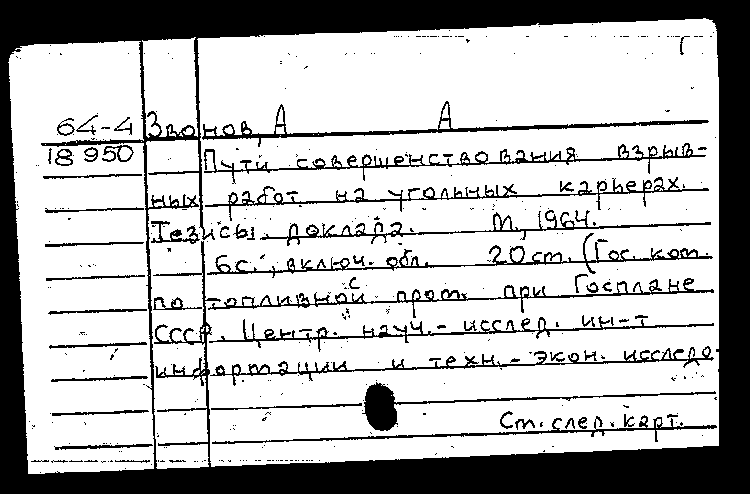 64-4 Звонов, А А
18 950 Пути совершенствования взрыв-
ных работ на угольных карьерах.
Тезисы доклада. М., 1964.
6с., включ. обл. 20см. (Гос. ком.
по топливной пром. при Госплане
СССР. Центр. науч.-исслед. ин-т
информации и техн.-экон. исследо-
См. след. карт.